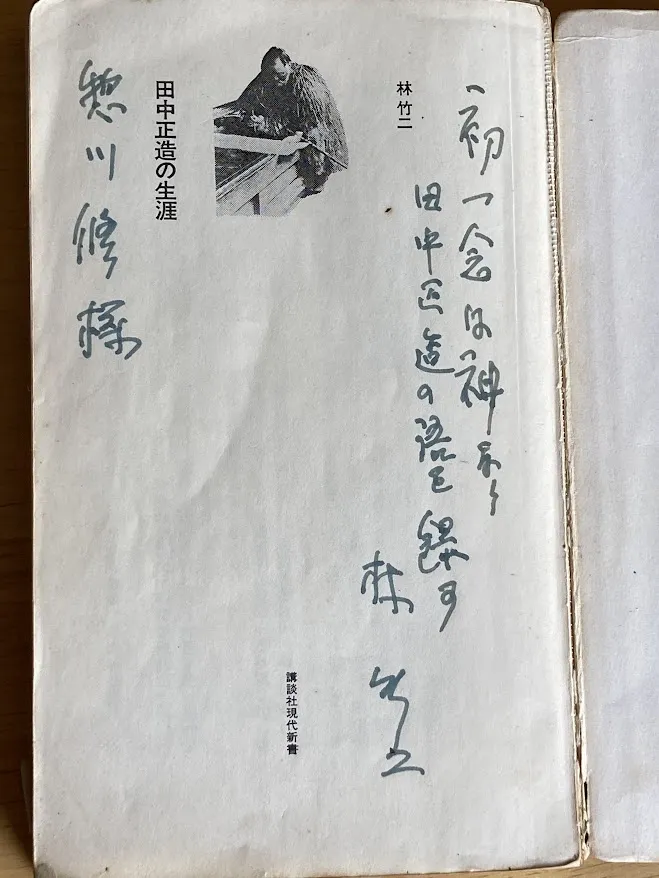 「初一念は神なり」
田中正造の語を録す
林 竹二
林 竹二
田中正造の生涯
講談社現代新書
惣川修様